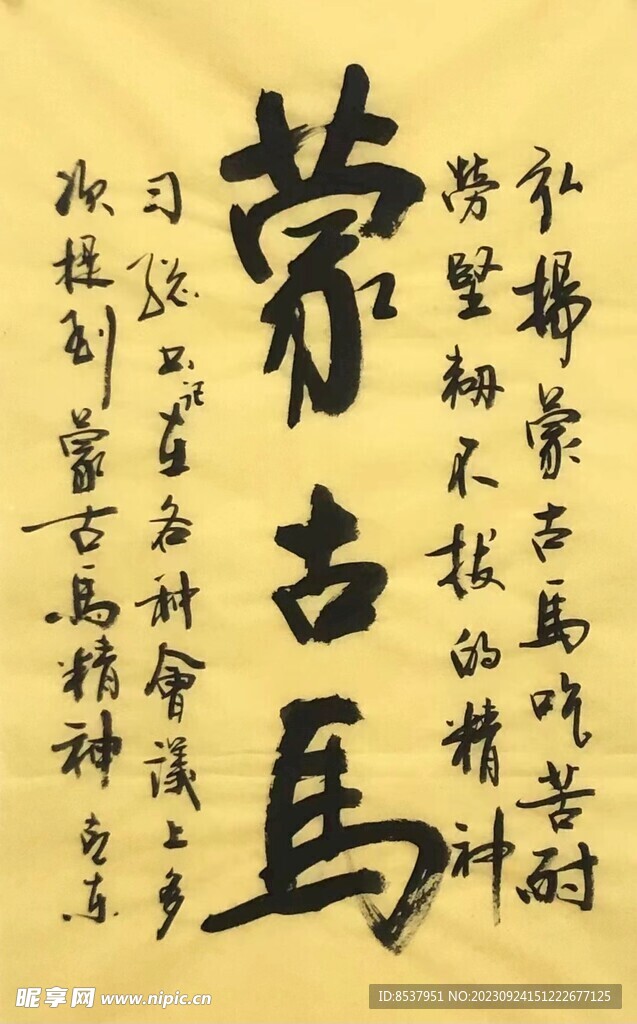 弘揚蒙古馬吃苦耐
勞堅韧不拔的精神
蒙古馬
习總书记在各种會議上多
次提到蒙古馬精神
昵享网 www.nipic.cn
ID:8537951 NO:20230924151222677125